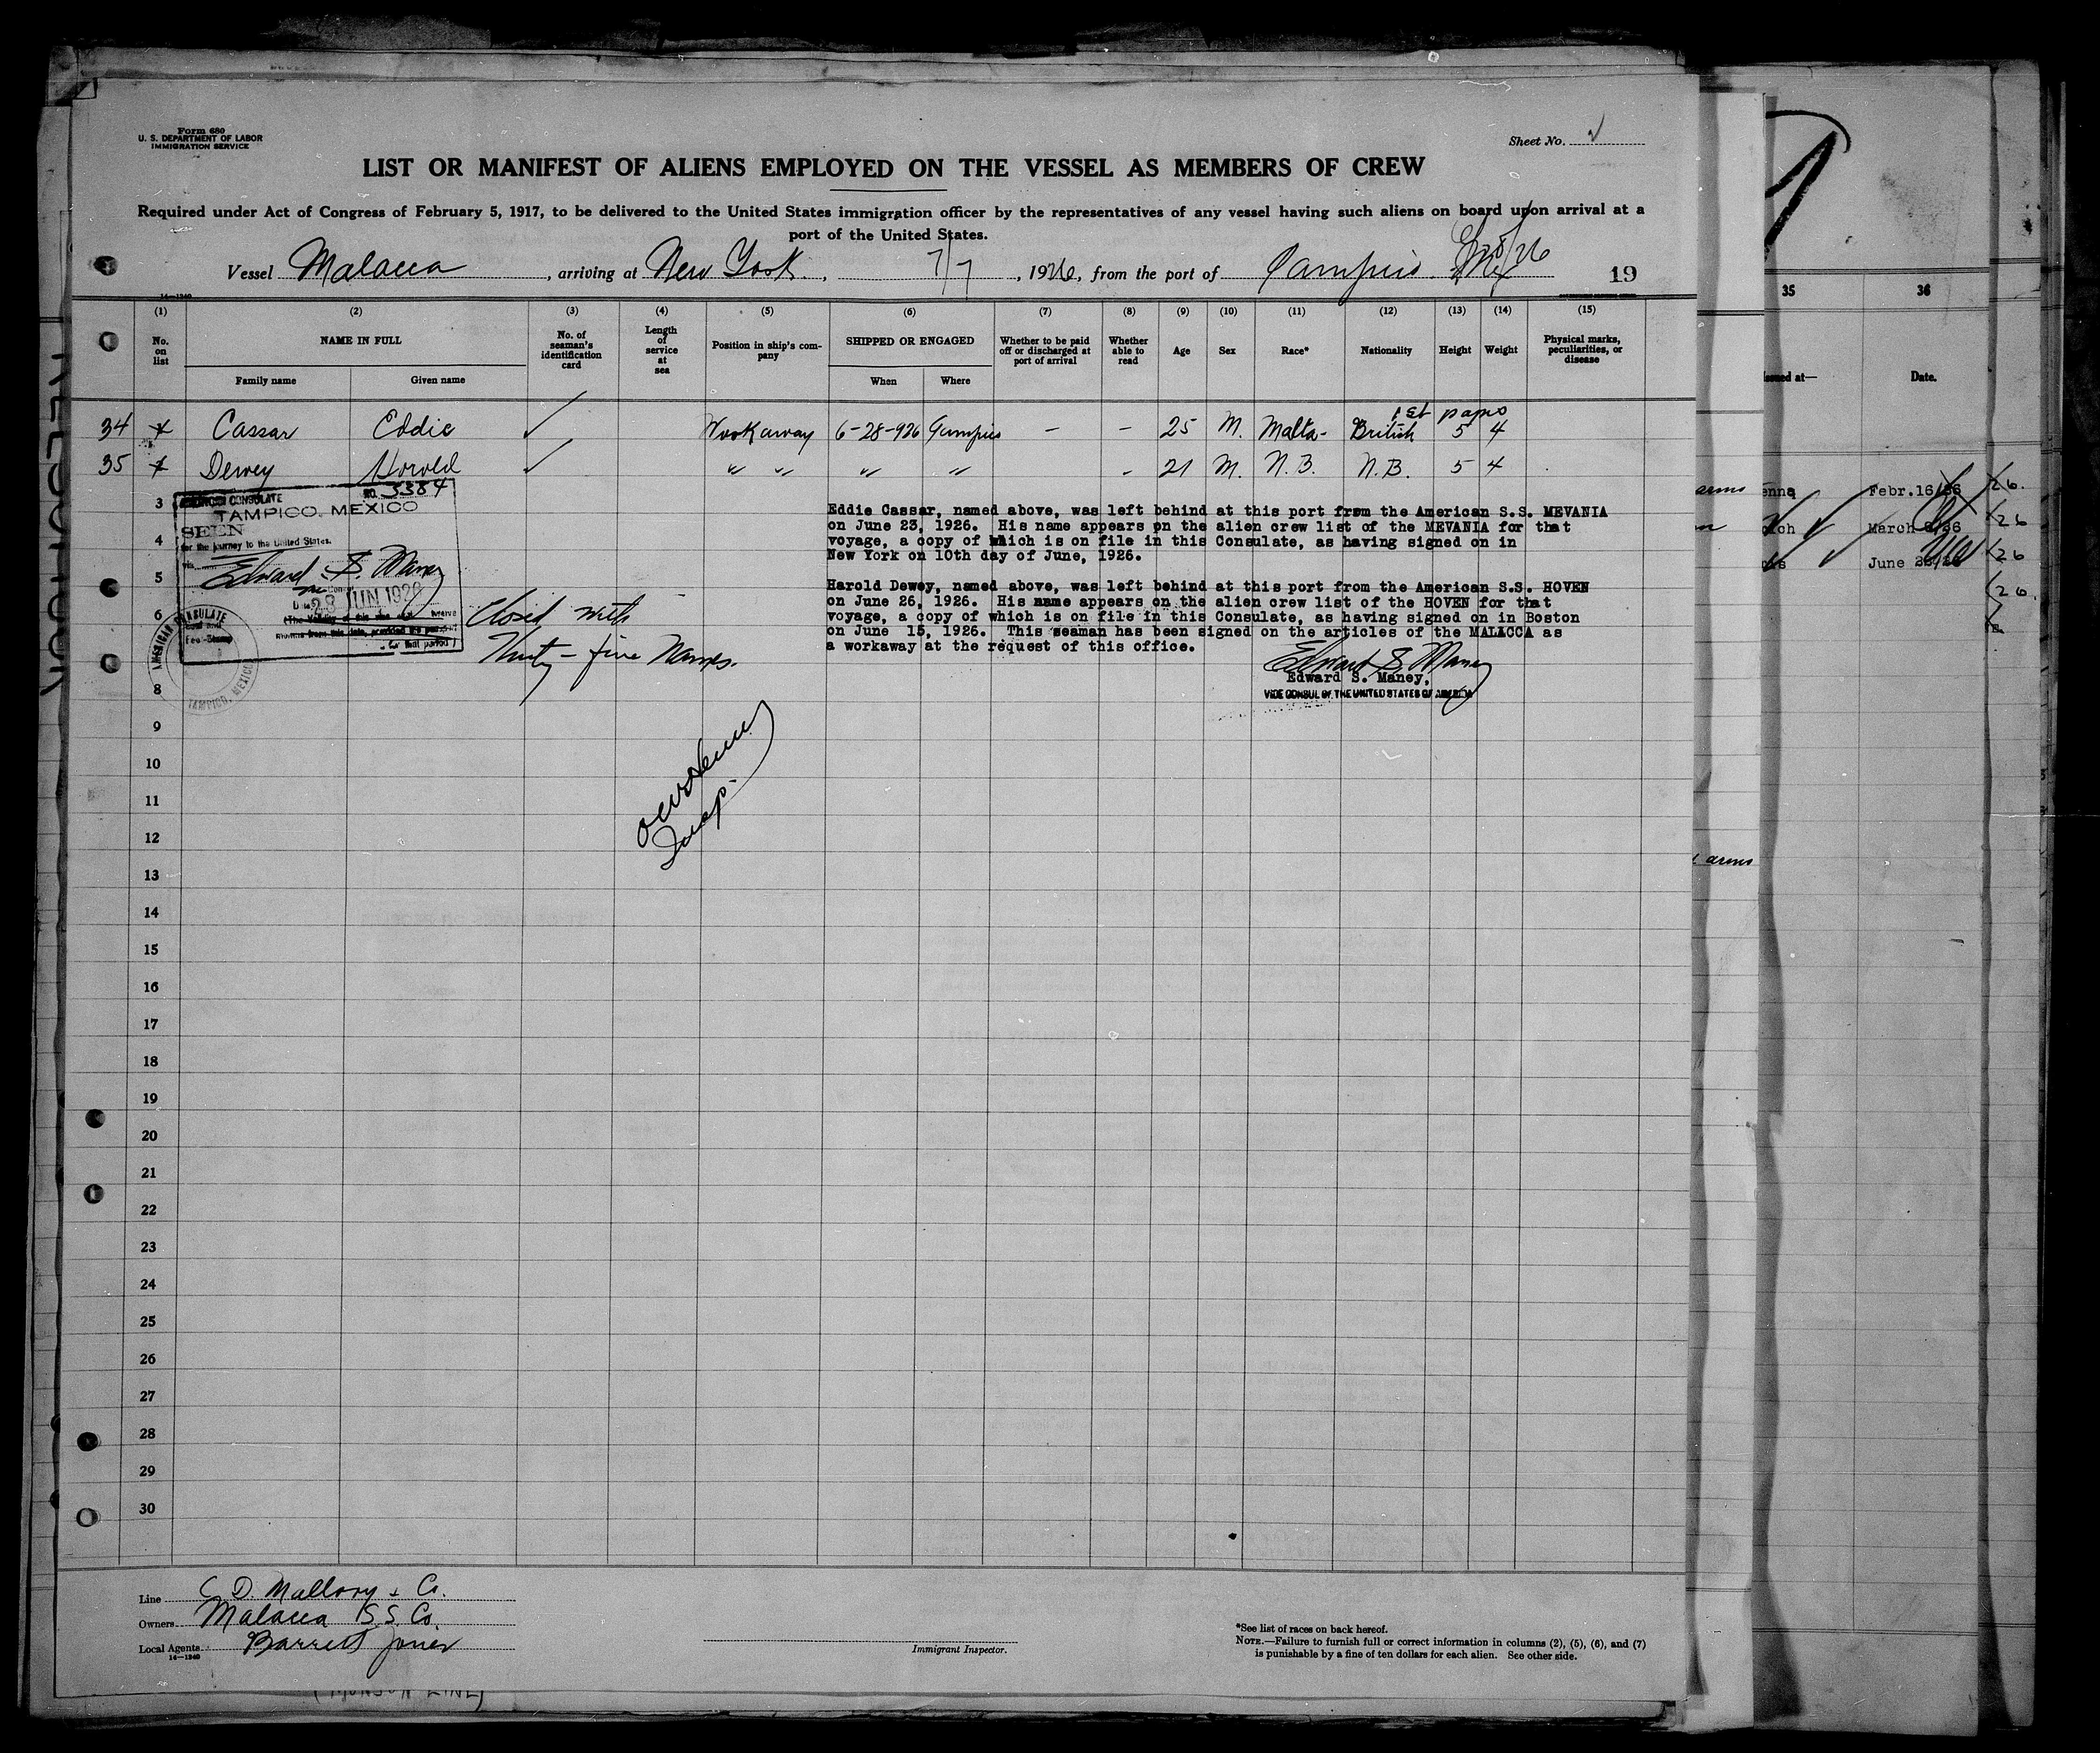 Form 680
U. S. DEPARTMENT OF LABOR
IMMIGRATION SERVICE
Sheet No. 2
LIST OR MANIFEST OF ALIENS EMPLOYED ON THE VESSEL AS MEMBERS OF CREW
Required under Act of Congress of February 5, 1917, to be delivered to the United States immigration officer by the representatives of any vessel having such aliens on board upon arrival at a
port of the United States.
Vessel Malacca, arriving at New York, 7/7, 1926, from the port of Tampico Mex
19
14—1240
(1) (2) (3) (4) (5) (6) (7) (8) (9) (10) (11) (12) (13) (14) (15)
No. on list
NAME IN FULL
Family name Given name
No. of seaman's identification card
Length of service at sea
Position in ship's company
SHIPPED OR ENGAGED
When Where
Whether to be paid off or discharged at port of arrival
Whether able to read
Age Sex Race* Nationality Height Weight
Physical marks, peculiarities, or disease
1st
34 Cassar Eddie ✓ Workaway 6-28-926 Tampico — – 25 M. Malta- British 5 4
35 Dewey Harold ✓ " " " " - 21 M. N.B. N.B. 5 4
NO. 3384
AMERICAN CONSULATE
TAMPICO, MEXICO
SEEN
for the journey to the United States.
Edward S. Maney
28 JUN 1926
AMERICAN CONSULATE
TAMPICO, MEXICO
Closed with
Thirty-five Names.
Eddie Cassar, named above, was left behind at this port from the American S.S. MEVANIA
on June 23, 1926. His name appears on the alien crew list of the MEVANIA for that
voyage, a copy of which is on file in this Consulate, as having signed on in
New York on 10th day of June, 1926.
Harold Dewey, named above, was left behind at this port from the American S.S. HOVEN
on June 26, 1926. His name appears on the alien crew list of the HOVEN for that
voyage, a copy of which is on file in this Consulate, as having signed on in Boston
on June 15, 1926. This seaman has been signed on the articles of the MALACCA as
a workaway at the request of this office.
Edward S. Maney
Edward S. Maney,
VICE CONSUL OF THE UNITED STATES OF AMERICA
Insp.
3
4
5
6
8
9
10
11
12
13
14
15
16
17
18
19
20
21
22
23
24
25
26
27
28
29
30
Line C. D. Mallory & Co.
Owners Malacca S.S. Co.
Local Agents Barrett Jones
14—1240
Immigrant Inspector.
*See list of races on back hereof.
NOTE.—Failure to furnish full or correct information in columns (2), (5), (6), and (7)
is punishable by a fine of ten dollars for each alien. See other side.
35 36
Date.
Febr. 16/26
March
June
arms